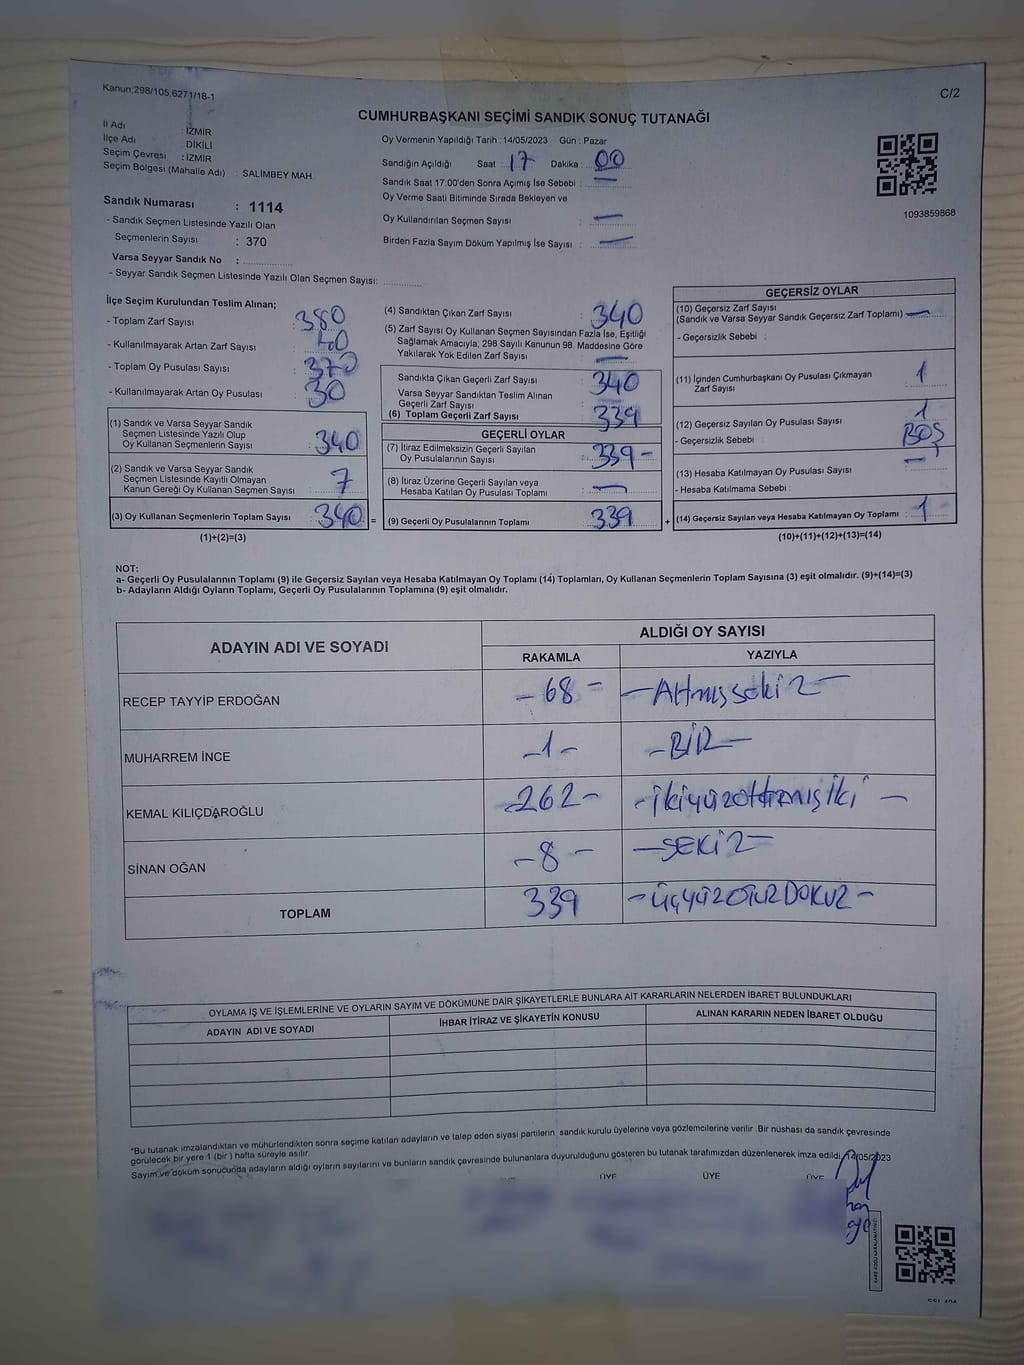 Kanun,298/105,6271/18-1
C/2
CUMHURBAŞKANI SEÇİMİ SANDIK SONUÇ TUTANAĞI
İl Adı : İZMİR
İlçe Adı DİKİLİ
Seçim Çevresi : İZMİR
Seçim Bölgesi (Mahalle Adı) : SALİMBEY MAH
Oy Vermenin Yapıldığı Tarih : 14/05/2023 Gün : Pazar
Sandığın Açıldığı Saat : 17 Dakika : 00
Sandık Saat 17.00'den Sonra Açımış İse Sebebi : —
Oy Verme Saati Bitiminde Sırada Bekleyen ve
Oy Kullandırılan Seçmen Sayısı : —
Birden Fazla Sayım Döküm Yapılmış İse Sayısı : —
1093859868
Sandık Numarası : 1114
- Sandık Seçmen Listesinde Yazılı Olan
Seçmenlerin Sayısı : 370
Varsa Seyyar Sandık No :
- Seyyar Sandık Seçmen Listesinde Yazılı Olan Seçmen Sayısı:
İlçe Seçim Kurulundan Teslim Alınan;
- Toplam Zarf Sayısı : 380
- Kullanılmayarak Artan Zarf Sayısı : 40
- Toplam Oy Pusulası Sayısı : 370
- Kullanılmayarak Artan Oy Pusulası : 30
(1) Sandık ve Varsa Seyyar Sandık
Seçmen Listesinde Yazılı Olup
Oy Kullanan Seçmenlerin Sayısı : 340
(2) Sandık ve Varsa Seyyar Sandık
Seçmen Listesinde Kayıtlı Olmayan
Kanun Gereği Oy Kullanan Seçmen Sayısı : 7
(3) Oy Kullanan Seçmenlerin Toplam Sayısı : 340 =
(1)+(2)=(3)
(4) Sandıktan Çıkan Zarf Sayısı : 340
(5) Zarf Sayısı Oy Kullanan Seçmen Sayısından Fazla İse, Eşitliği
Sağlamak Amacıyla; 298 Sayılı Kanunun 98. Maddesine Göre
Yakılarak Yok Edilen Zarf Sayısı : —
Sandıkta Çıkan Geçerli Zarf Sayısı : 340
Varsa Seyyar Sandıktan Teslim Alınan
Geçerli Zarf Sayısı :
(6) Toplam Geçerli Zarf Sayısı : 339
GEÇERLİ OYLAR
(7) İtiraz Edilmeksizin Geçerli Sayılan
Oy Pusulalarının Sayısı : 339 -
(8) İtiraz Üzerine Geçerli Sayılan veya
Hesaba Katılan Oy Pusulası Toplamı : —
(9) Geçerli Oy Pusulalarının Toplamı : 339 +
GEÇERSİZ OYLAR
(10) Geçersiz Zarf Sayısı
(Sandık ve Varsa Seyyar Sandık Geçersiz Zarf Toplamı) : —
- Geçersizlik Sebebi :
(11) İçinden Cumhurbaşkanı Oy Pusulası Çıkmayan
Zarf Sayısı : 1
(12) Geçersiz Sayılan Oy Pusulası : 1
- Geçersizlik Sebebi : BOŞ
(13) Hesaba Katılmayan Oy Pusulası Sayısı : —
- Hesaba Katılmama Sebebi :
(14) Geçersiz Sayılan veya Hesaba Katılmayan Oy Toplamı : 1
(10)+(11)+(12)+(13)=(14)
NOT:
a- Geçerli Oy Pusulalarının Toplamı (9) ile Geçersiz Sayılan veya Hesaba Katılmayan Oy Toplamı (14) Toplamları, Oy Kullanan Seçmenlerin Toplam Sayısına (3) eşit olmalıdır. (9)+(14)=(3)
b- Adayların Aldığı Oyların Toplamı, Geçerli Oy Pusulalarının Toplamına (9) eşit olmalıdır.
ADAYIN ADI VE SOYADI
ALDIĞI OY SAYISI
RAKAMLA YAZIYLA
RECEP TAYYİP ERDOĞAN - 68 - - Altmışsekiz -
MUHARREM İNCE - 1 - - BİR -
KEMAL KILIÇDAROĞLU - 262 - - ikiyüzaltmışiki -
SİNAN OĞAN - 8 - - SEKİZ -
TOPLAM 339 - ÜÇYÜZOTUZDOKUZ -
OYLAMA İŞ VE İŞLEMLERİNE VE OYLARIN SAYIM VE DÖKÜMÜNE DAİR ŞİKAYETLERLE BUNLARA AİT KARARLARIN NELERDEN İBARET BULUNDUKLARI
ADAYIN ADI VE SOYADI İHBAR İTİRAZ VE ŞİKAYETİN KONUSU ALINAN KARARIN NEDEN İBARET OLDUĞU
*Bu tutanak imzalandıktan ve mühürlendikten sonra seçime katılan adayların ve talep eden siyasi partilerin, sandık kurulu üyelerine veya gözlemcilerine verilir .Bir nüshası da sandık çevresinde
görülecek bir yere 1 (bir ) hafta süreyle asılır.
Sayım ve döküm sonucunda adayların aldığı oyların sayılarını ve bunların sandık çevresinde bulunanlara duyurulduğunu gösteren bu tutanak tarafımızdan düzenlenerek imza edildi. 14/05/2023
ÜYE ÜYE ÜYE